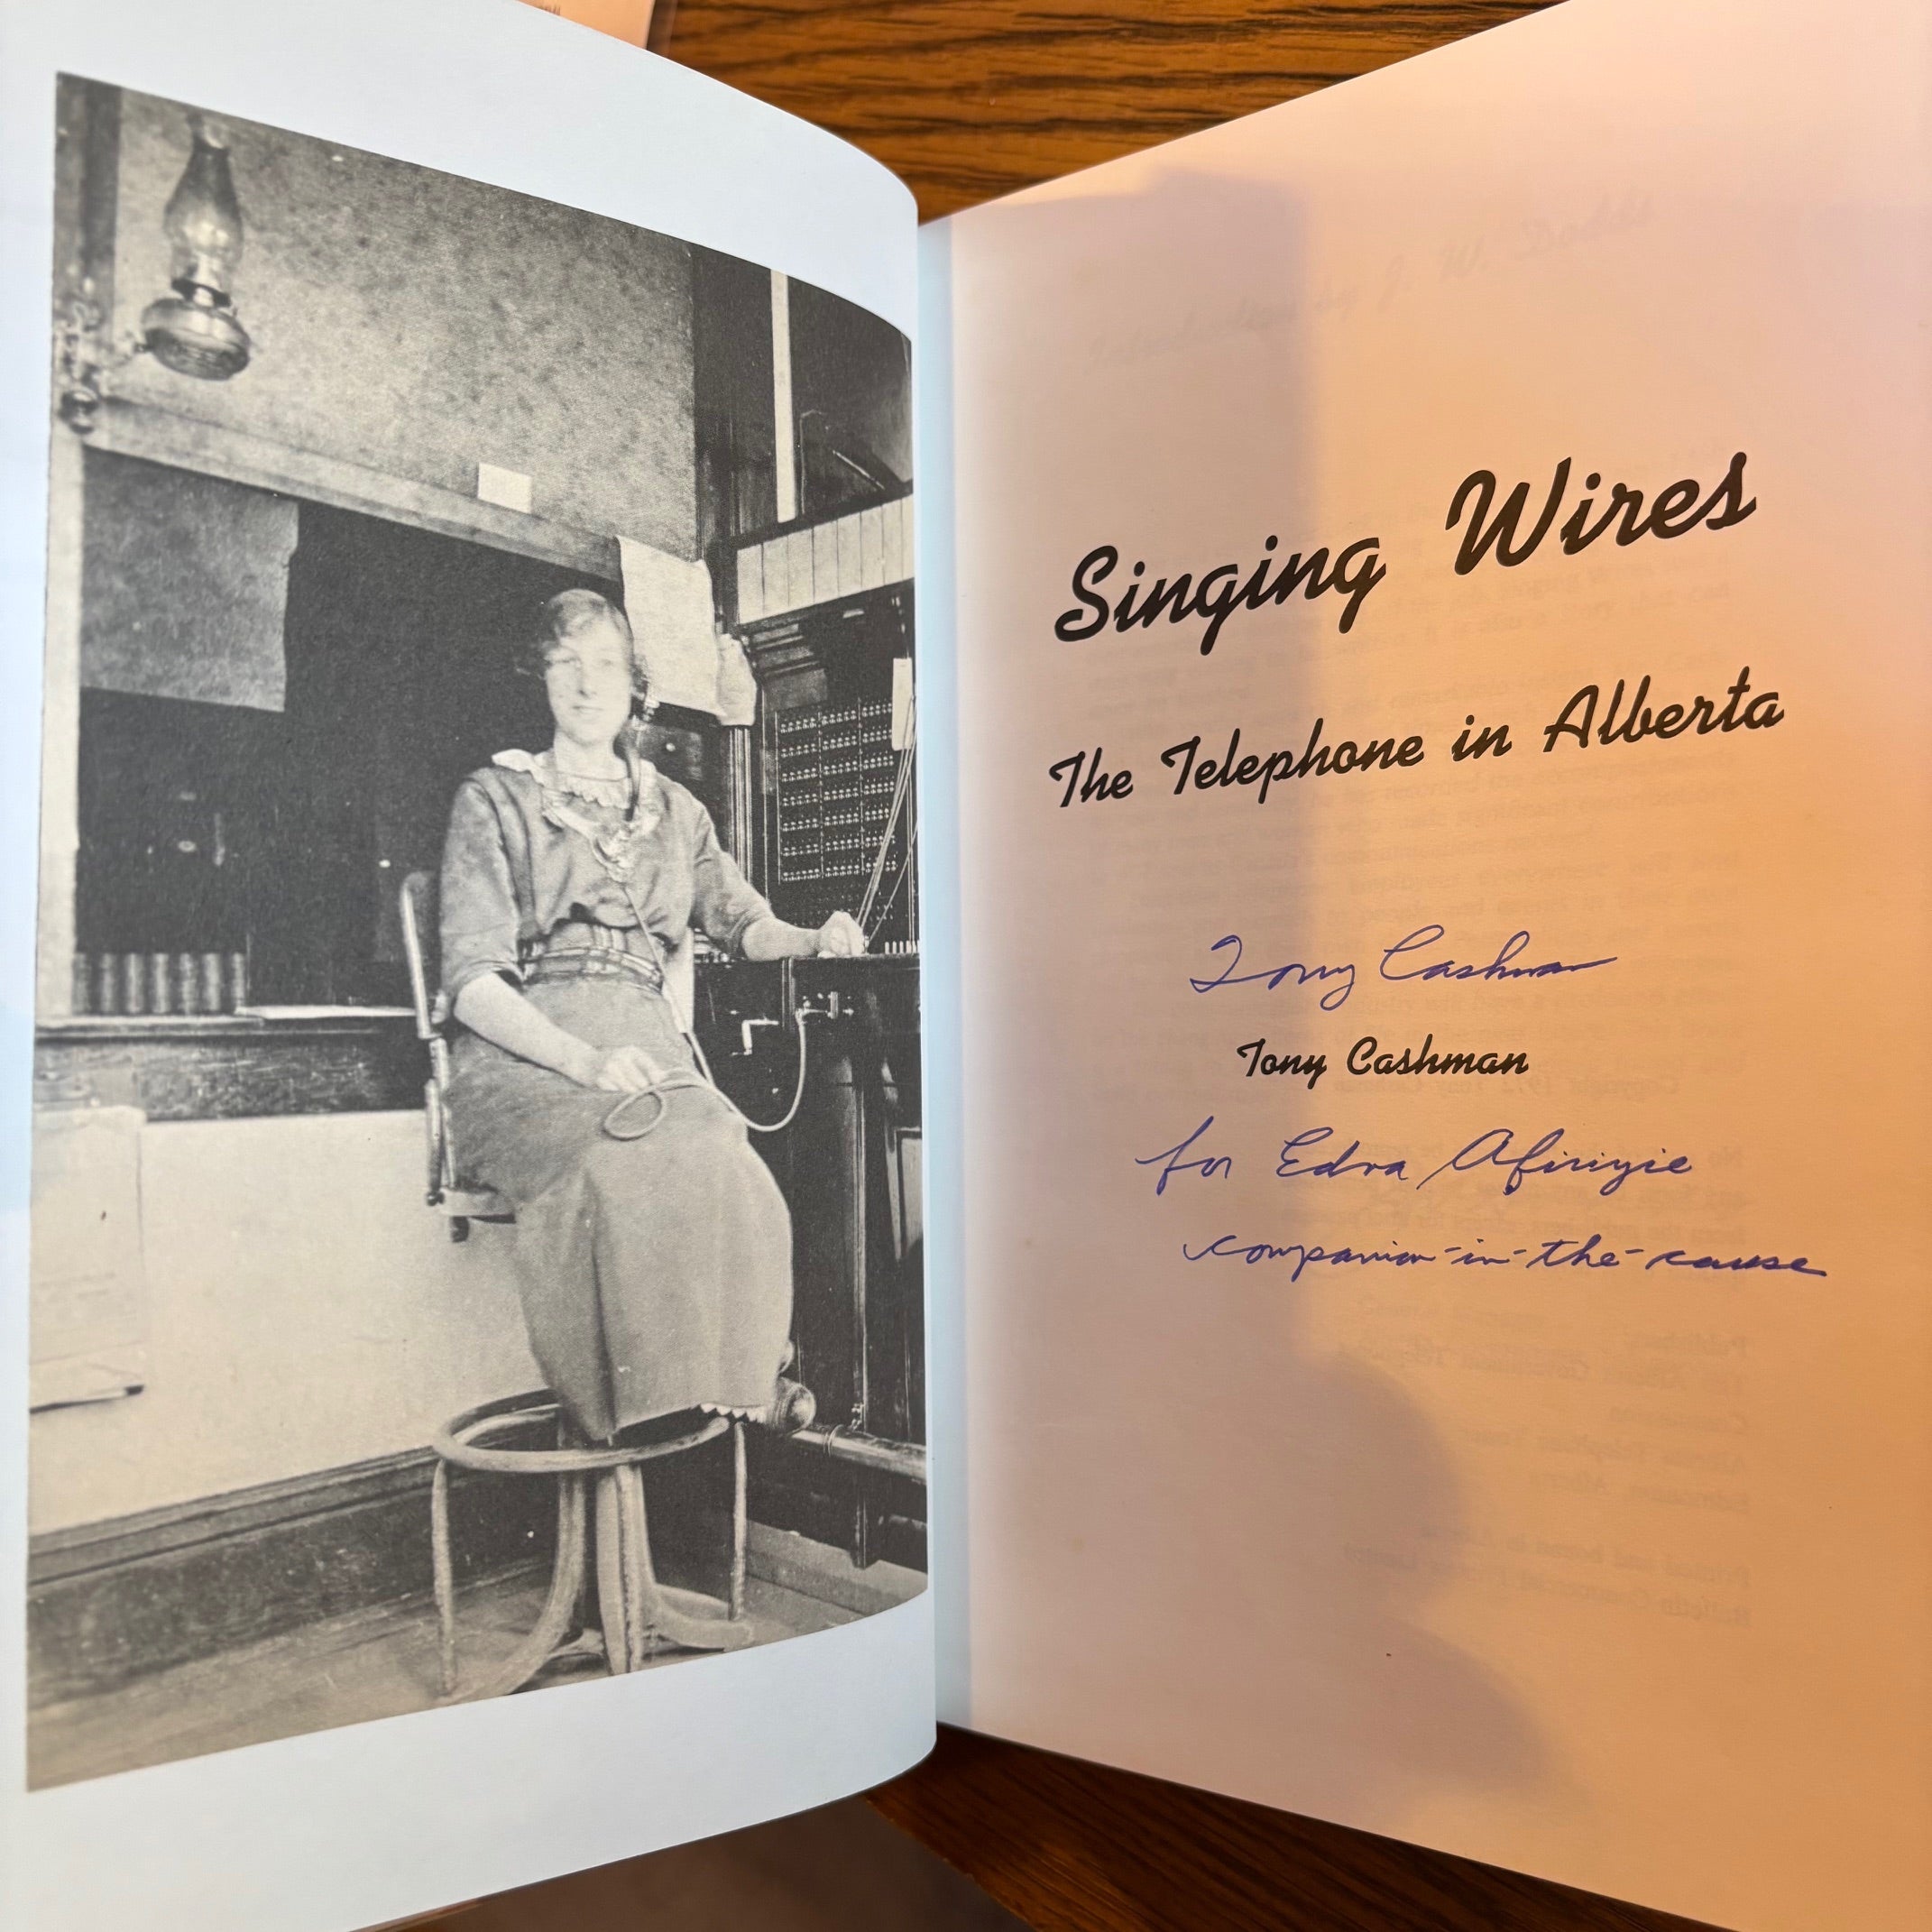 Singing Wires
The Telephone in Alberta
Tony Cashman
Tony Cashman
for Edna Afiriyie
companion-in-the-cause